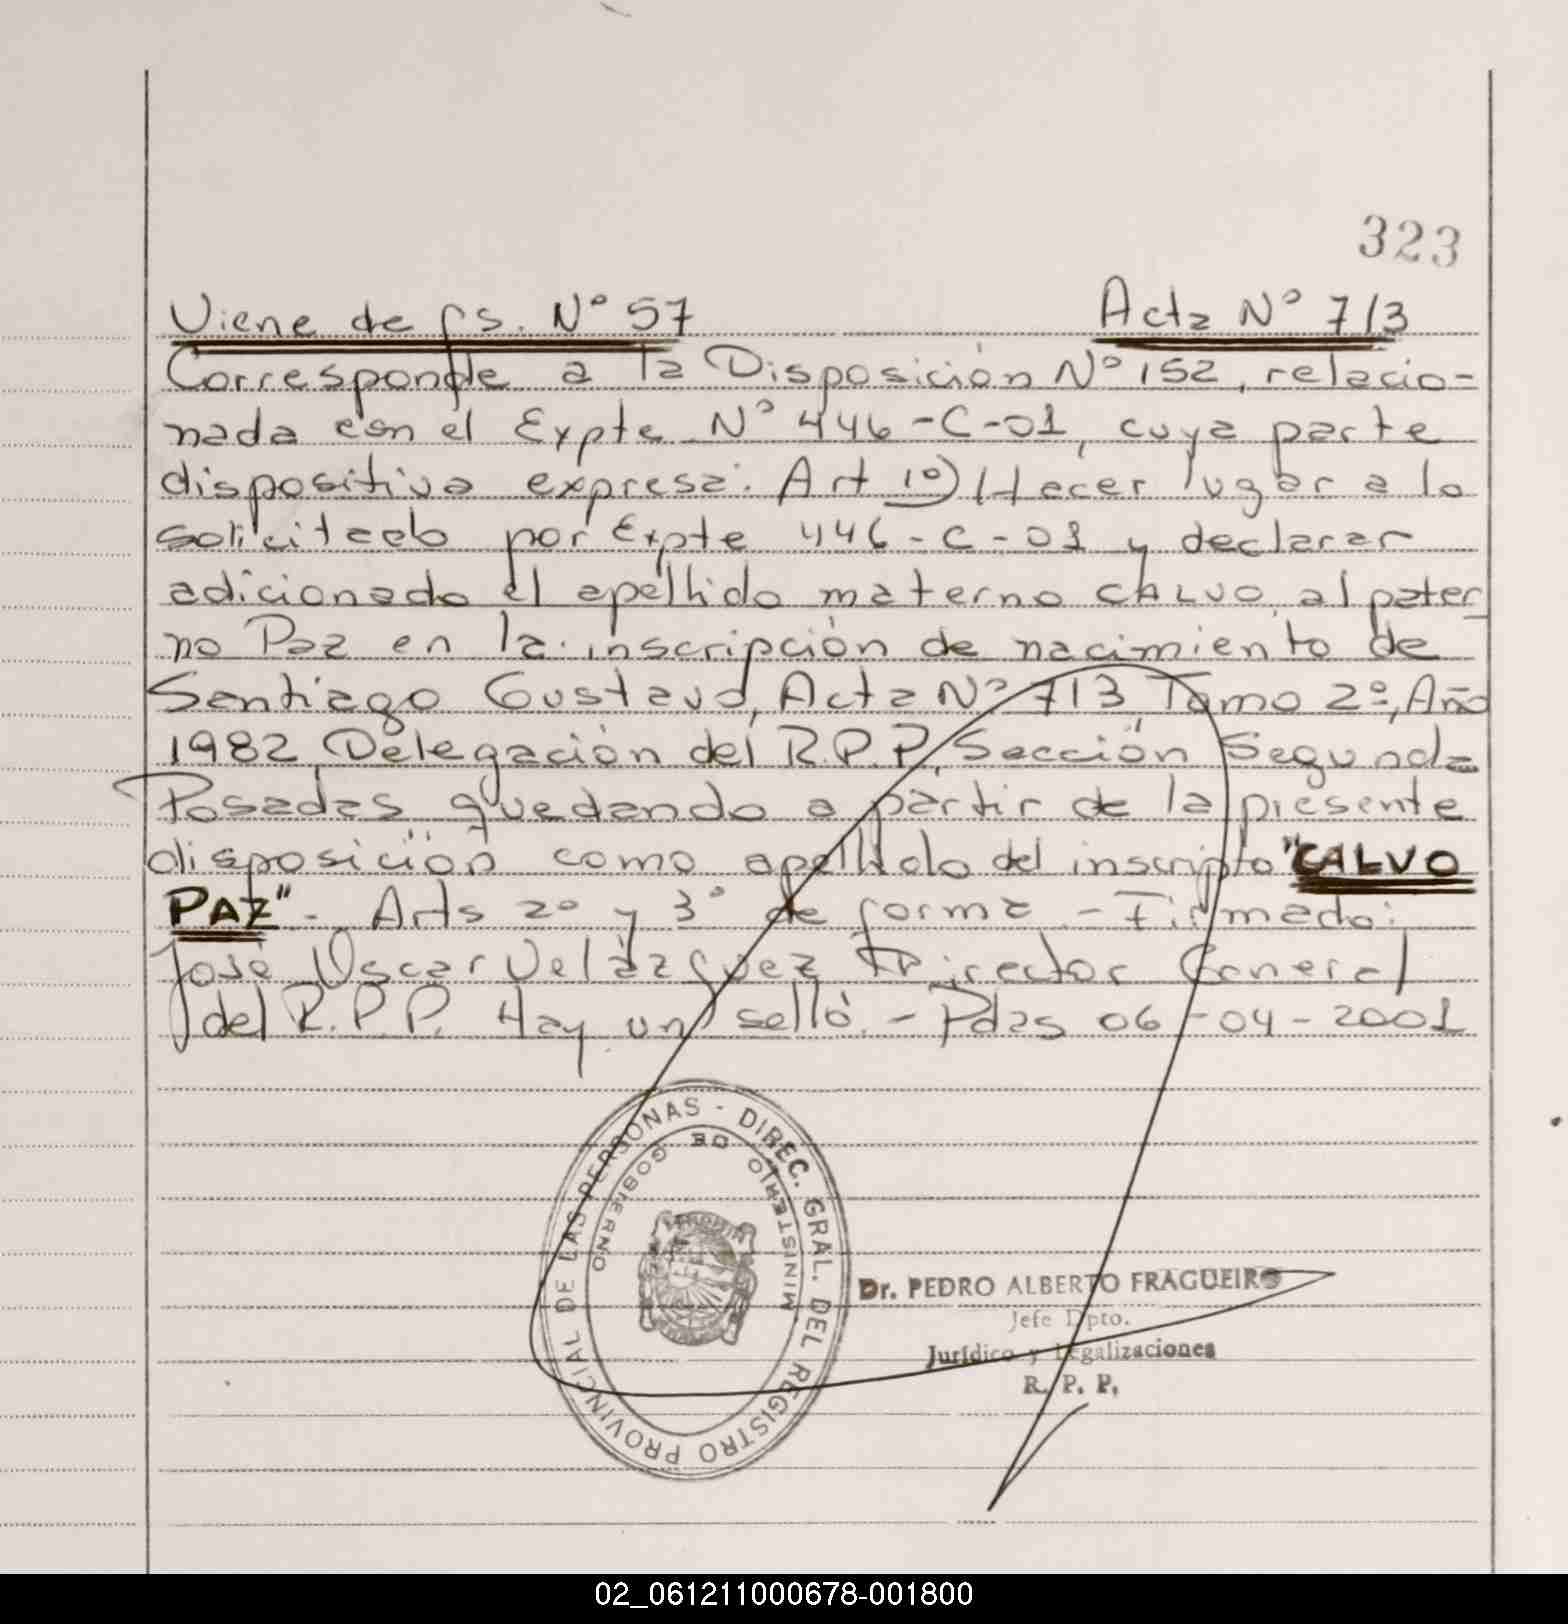 323
Viene de fs. Nº 57 Acta Nº 713
Corresponde a la Disposición Nº 152, relacio-
nada con el Expte Nº 446-C-01, cuya parte
dispositiva expresa: Art 1º) Hacer lugar a lo
solicitado por Expte 446-C-01 y declarar
adicionado el apellido materno CALVO, al pater
no Paz en la inscripción de nacimiento de
Santiago Gustavo, Acta Nº 713 Tomo 2º, Año
1982, Delegación del R.P.P, Sección Segunda
Posadas quedando a partir de la presente
disposición como apellido del inscripto "CALVO
PAZ". - Arts 2º y 3º de forma. - Firmado:
José Oscar Velázquez Director General
del R.P.P. Hay un sello. - Pdas 06-04-2001
DIREC. GRAL. DEL REGISTRO PROVINCIAL DE LAS PERSONAS -
MINISTERIO DE GOBIERNO
Dr. PEDRO ALBERTO FRAGUEIRO
Jefe Dpto.
Jurídico y Legalizaciones
R. P. P.
02_061211000678-001800